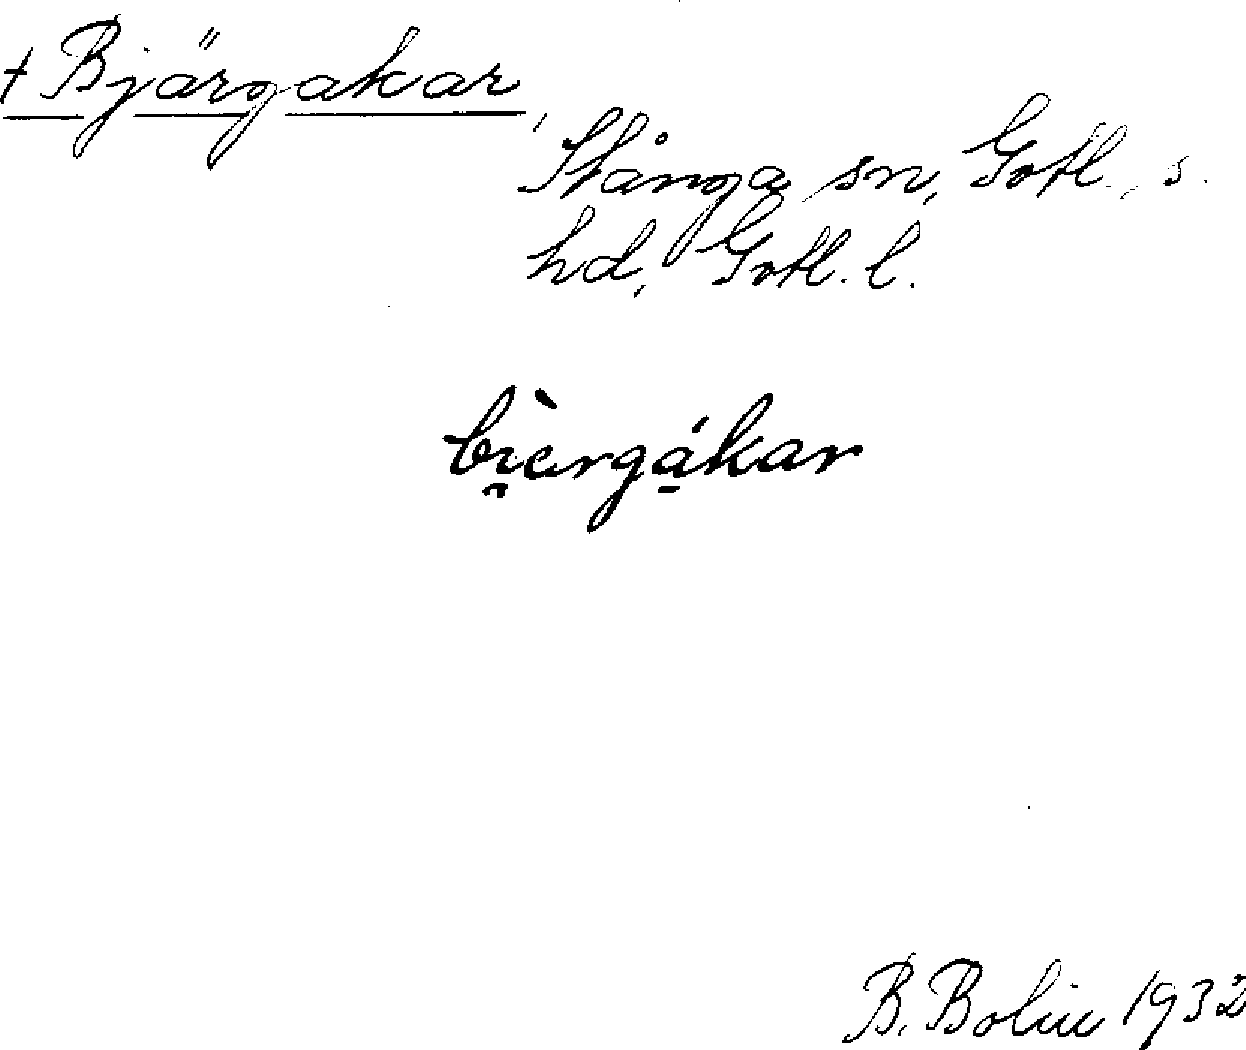 + Bjärgakar,
Stånga sn, Gotl. s.
hd, Gotl. l.
bi̯èrgá̱kar
B. Bolin 1932